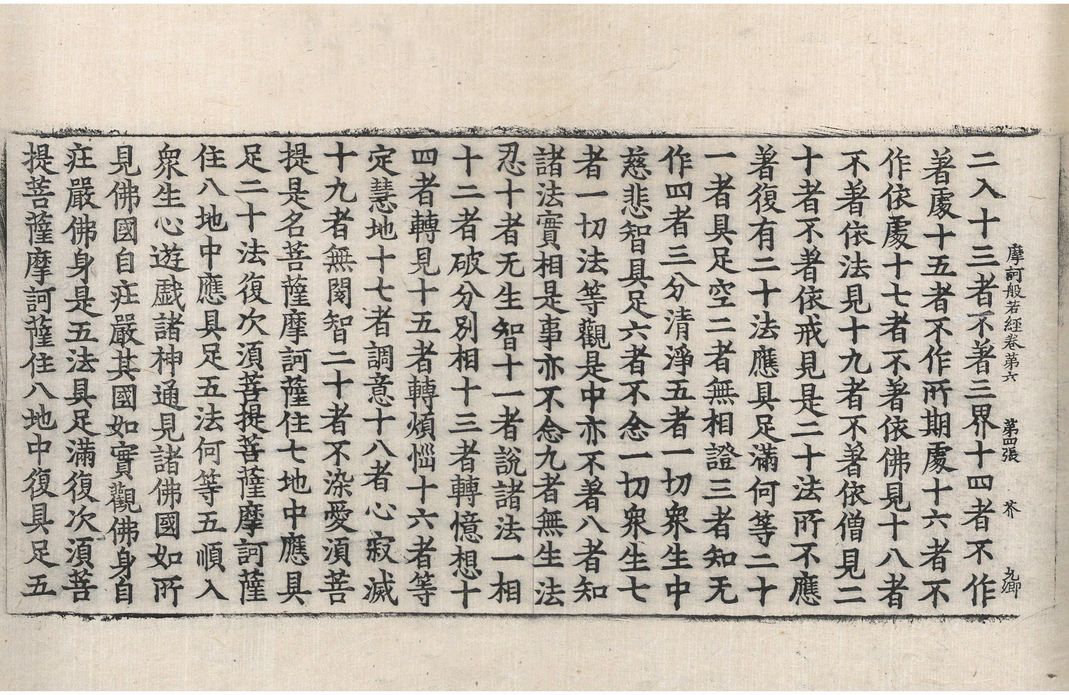 摩訶般若經卷第六 第四張 芥 九卿
二入十三者不著三界十四者不作
著處十五者不作所期處十六者不
作依處十七者不著依佛見十八者
不著依法見十九者不著依僧見二
十者不著依戒見是二十法所不應
著復有二十法應具足滿何等二十
一者具足空二者無相證三者知无
作四者三分清淨五者一切衆生中
慈悲智具足六者不念一切衆生七
者一切法等觀是中亦不著八者知
諸法實相是事亦不念九者無生法
忍十者无生智十一者說諸法一相
十二者破分別相十三者轉憶想十
四者轉見十五者轉煩惱十六者等
定慧地十七者調意十八者心寂滅
十九者無閡智二十者不染愛須菩
提是名菩薩摩訶薩住七地中應具
足二十法復次須菩提菩薩摩訶薩
住八地中應具足五法何等五順入
衆生心遊戲諸神通見諸佛國如所
見佛國自莊嚴其國如實觀佛身自
莊嚴佛身是五法具足滿復次須菩
提菩薩摩訶薩住八地中復具足五